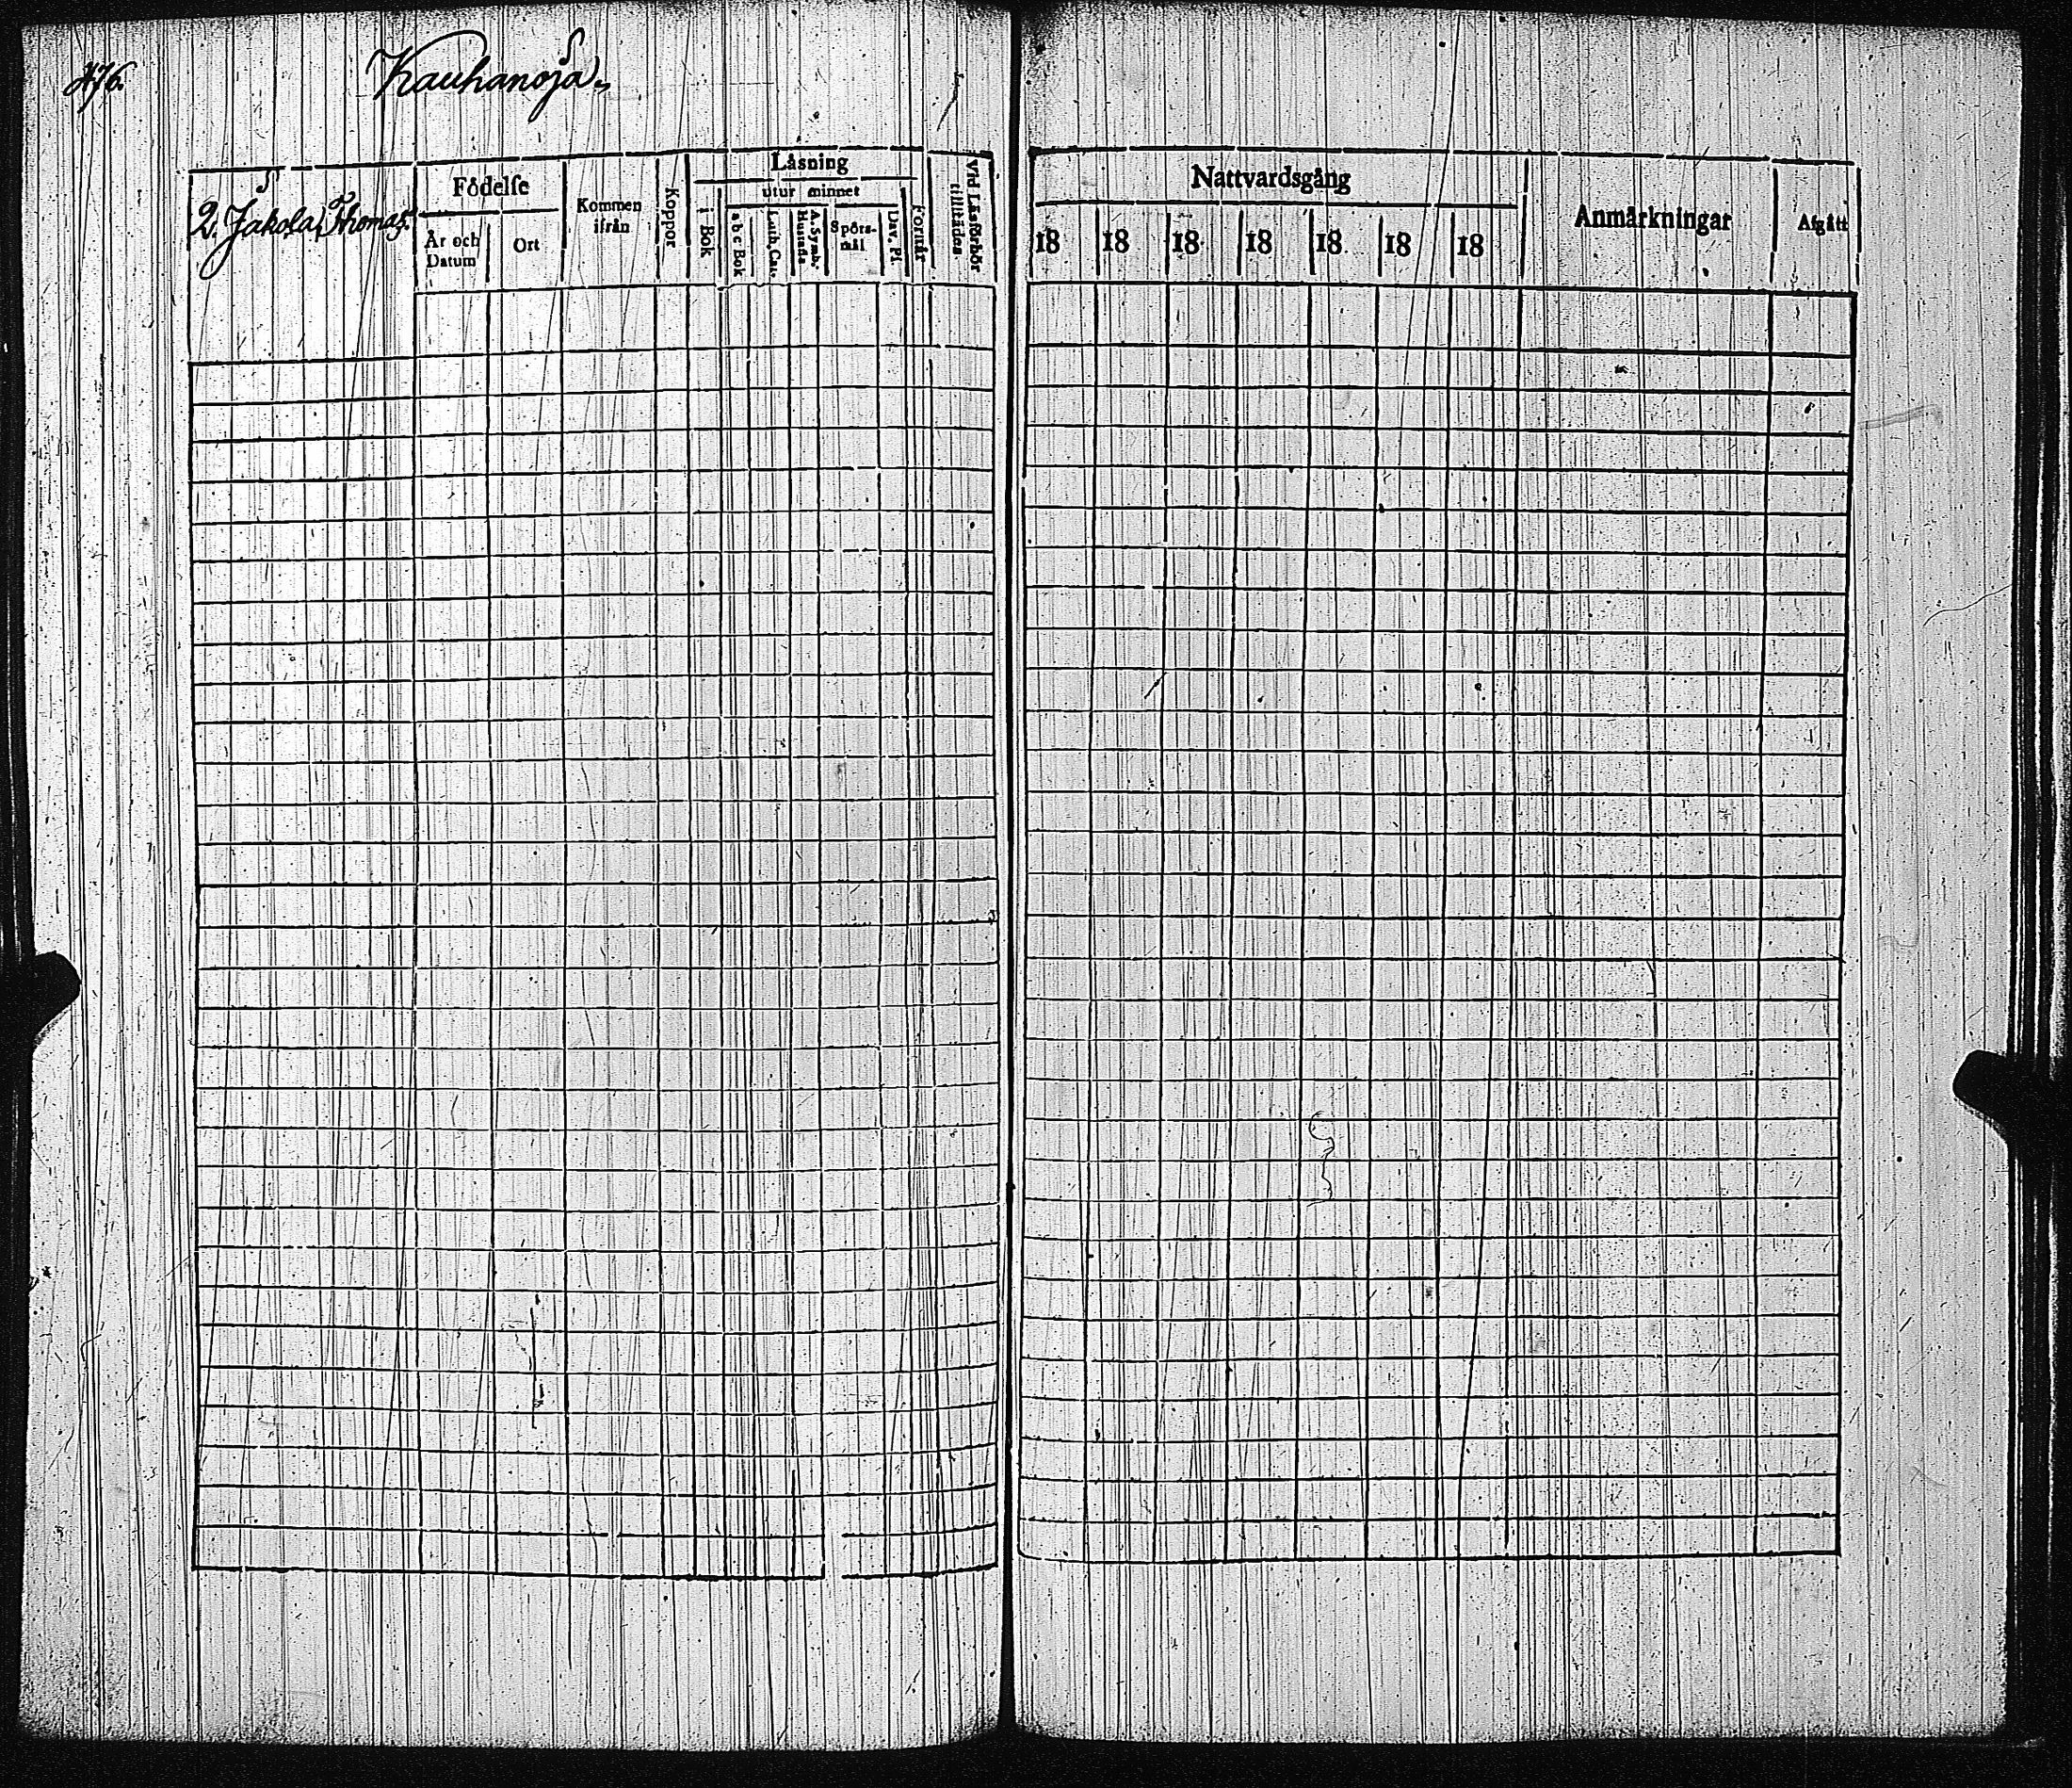 476.
Kauhanoja.
2. Jakola, Thomas.
Födelse
År och
Datum
Ort
Kommen
ifrån
Koppor
Läsning
i Bok
utur minnet
a b c Bok
Luth. Cat.
A. Symb.
Hustafla
Spörs-
mål
Dav. Ps.
Förstår
Vid Läsförhör
tillstädes
Nattvardsgång
18 18 18 18 18 18 18
Anmärkningar
Afgått